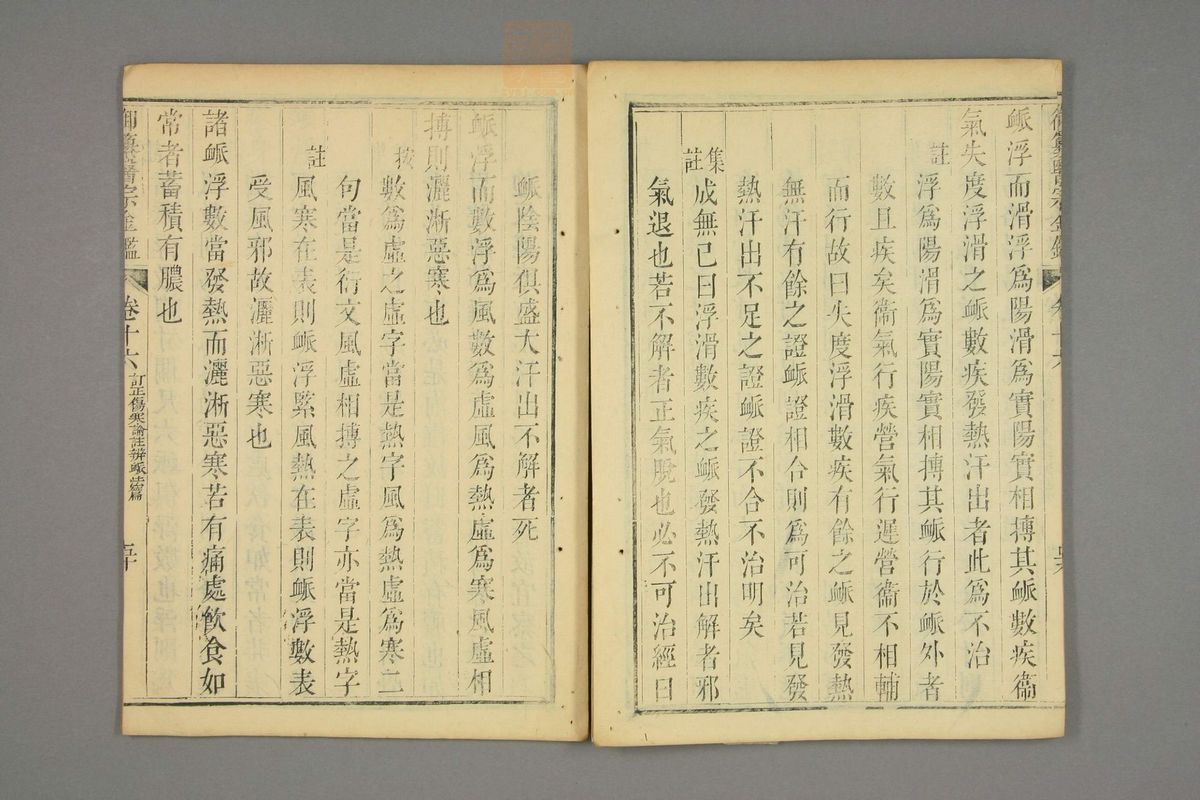 御纂醫宗金鑑 卷十六
脈浮而滑浮為陽滑為實陽實相搏其脈數疾衞
氣失度浮滑之脈數疾發熱汗出者此為不治
註 浮為陽滑為實陽實相搏其脈行於脈外者
數且疾矣衞氣行疾營氣行遲營衞不相輔
而行故曰失度浮滑數疾有餘之脈見發熱
無汗有餘之證脈證相合則為可治若見發
熱汗出不足之證脈證不合不治明矣
集註 成無己曰浮滑數疾之脈發熱汗出解者邪
氣退也若不解者正氣脫也必不可治經曰
脈陰陽俱盛大汗出不解者死
脈浮而數浮為風數為虛風為熱虛為寒風虛相
搏則灑淅惡寒也
按 數為虛之虛字當是熱字風為熱虛為寒二
句當是衍文風虛相搏之虛字亦當是熱字
註 風寒在表則脈浮緊風熱在表則脈浮數表
受風邪故灑淅惡寒也
諸脈浮數當發熱而灑淅惡寒若有痛處飲食如
常者蓄積有膿也
御纂醫宗金鑑 卷十六 訂正傷寒論註辨脈法篇 五十